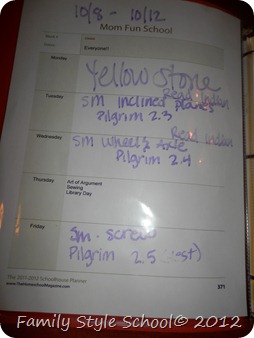 10/8 - 10/12
Mom Fun School
Everyone!!
Monday
Yellowstone
Read Indian
Tuesday
SM Inclined Planes
Pilgrim 2.3
Read Indian
Wednesday
SM Wheel & Axle
Pilgrim 2.4
Thursday
Art of Argument
Sewing
Library Day
Friday
SM - Screw
Pilgrim 2.5
The 2011-2012 Schoolhouse Planner
www.TheHomeschoolMagazine.com
371
Family Style School© 2012